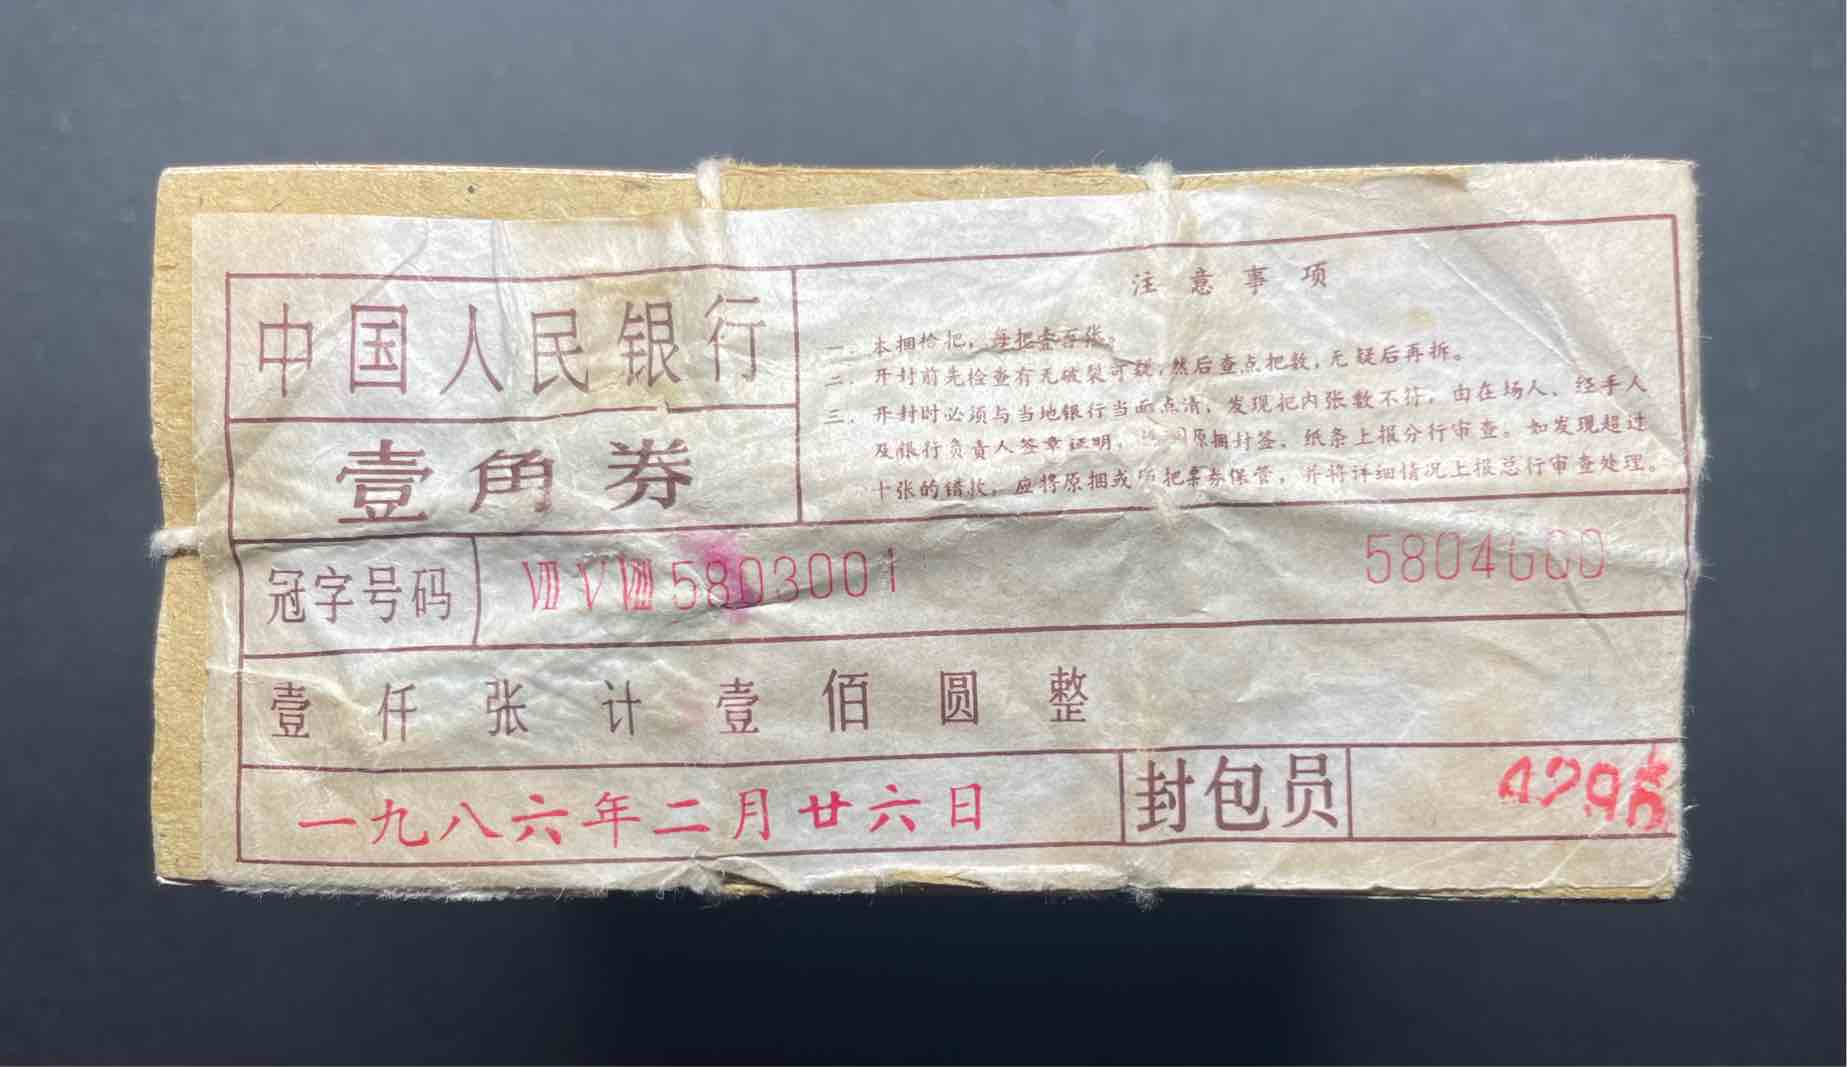 中国人民银行
壹角券
注意事项
一．本捆拾把，每把壹百张。
二．开封前先检查有无破裂可疑，然后查点把数，无疑后再拆。
三．开封时必须与当地银行当面点清，发现把内张数不符，由在场人、经手人
及银行负责人签章证明，原捆封签、纸条上报分行审查。如发现超过
十张的错款，应将原捆或 把票券保管，并将详细情况上报总行审查处理。
冠字号码 Ⅶ Ⅴ Ⅷ 5803001 5804000
壹仟张计壹佰圆整
一九八六年二月廿六日 封包员